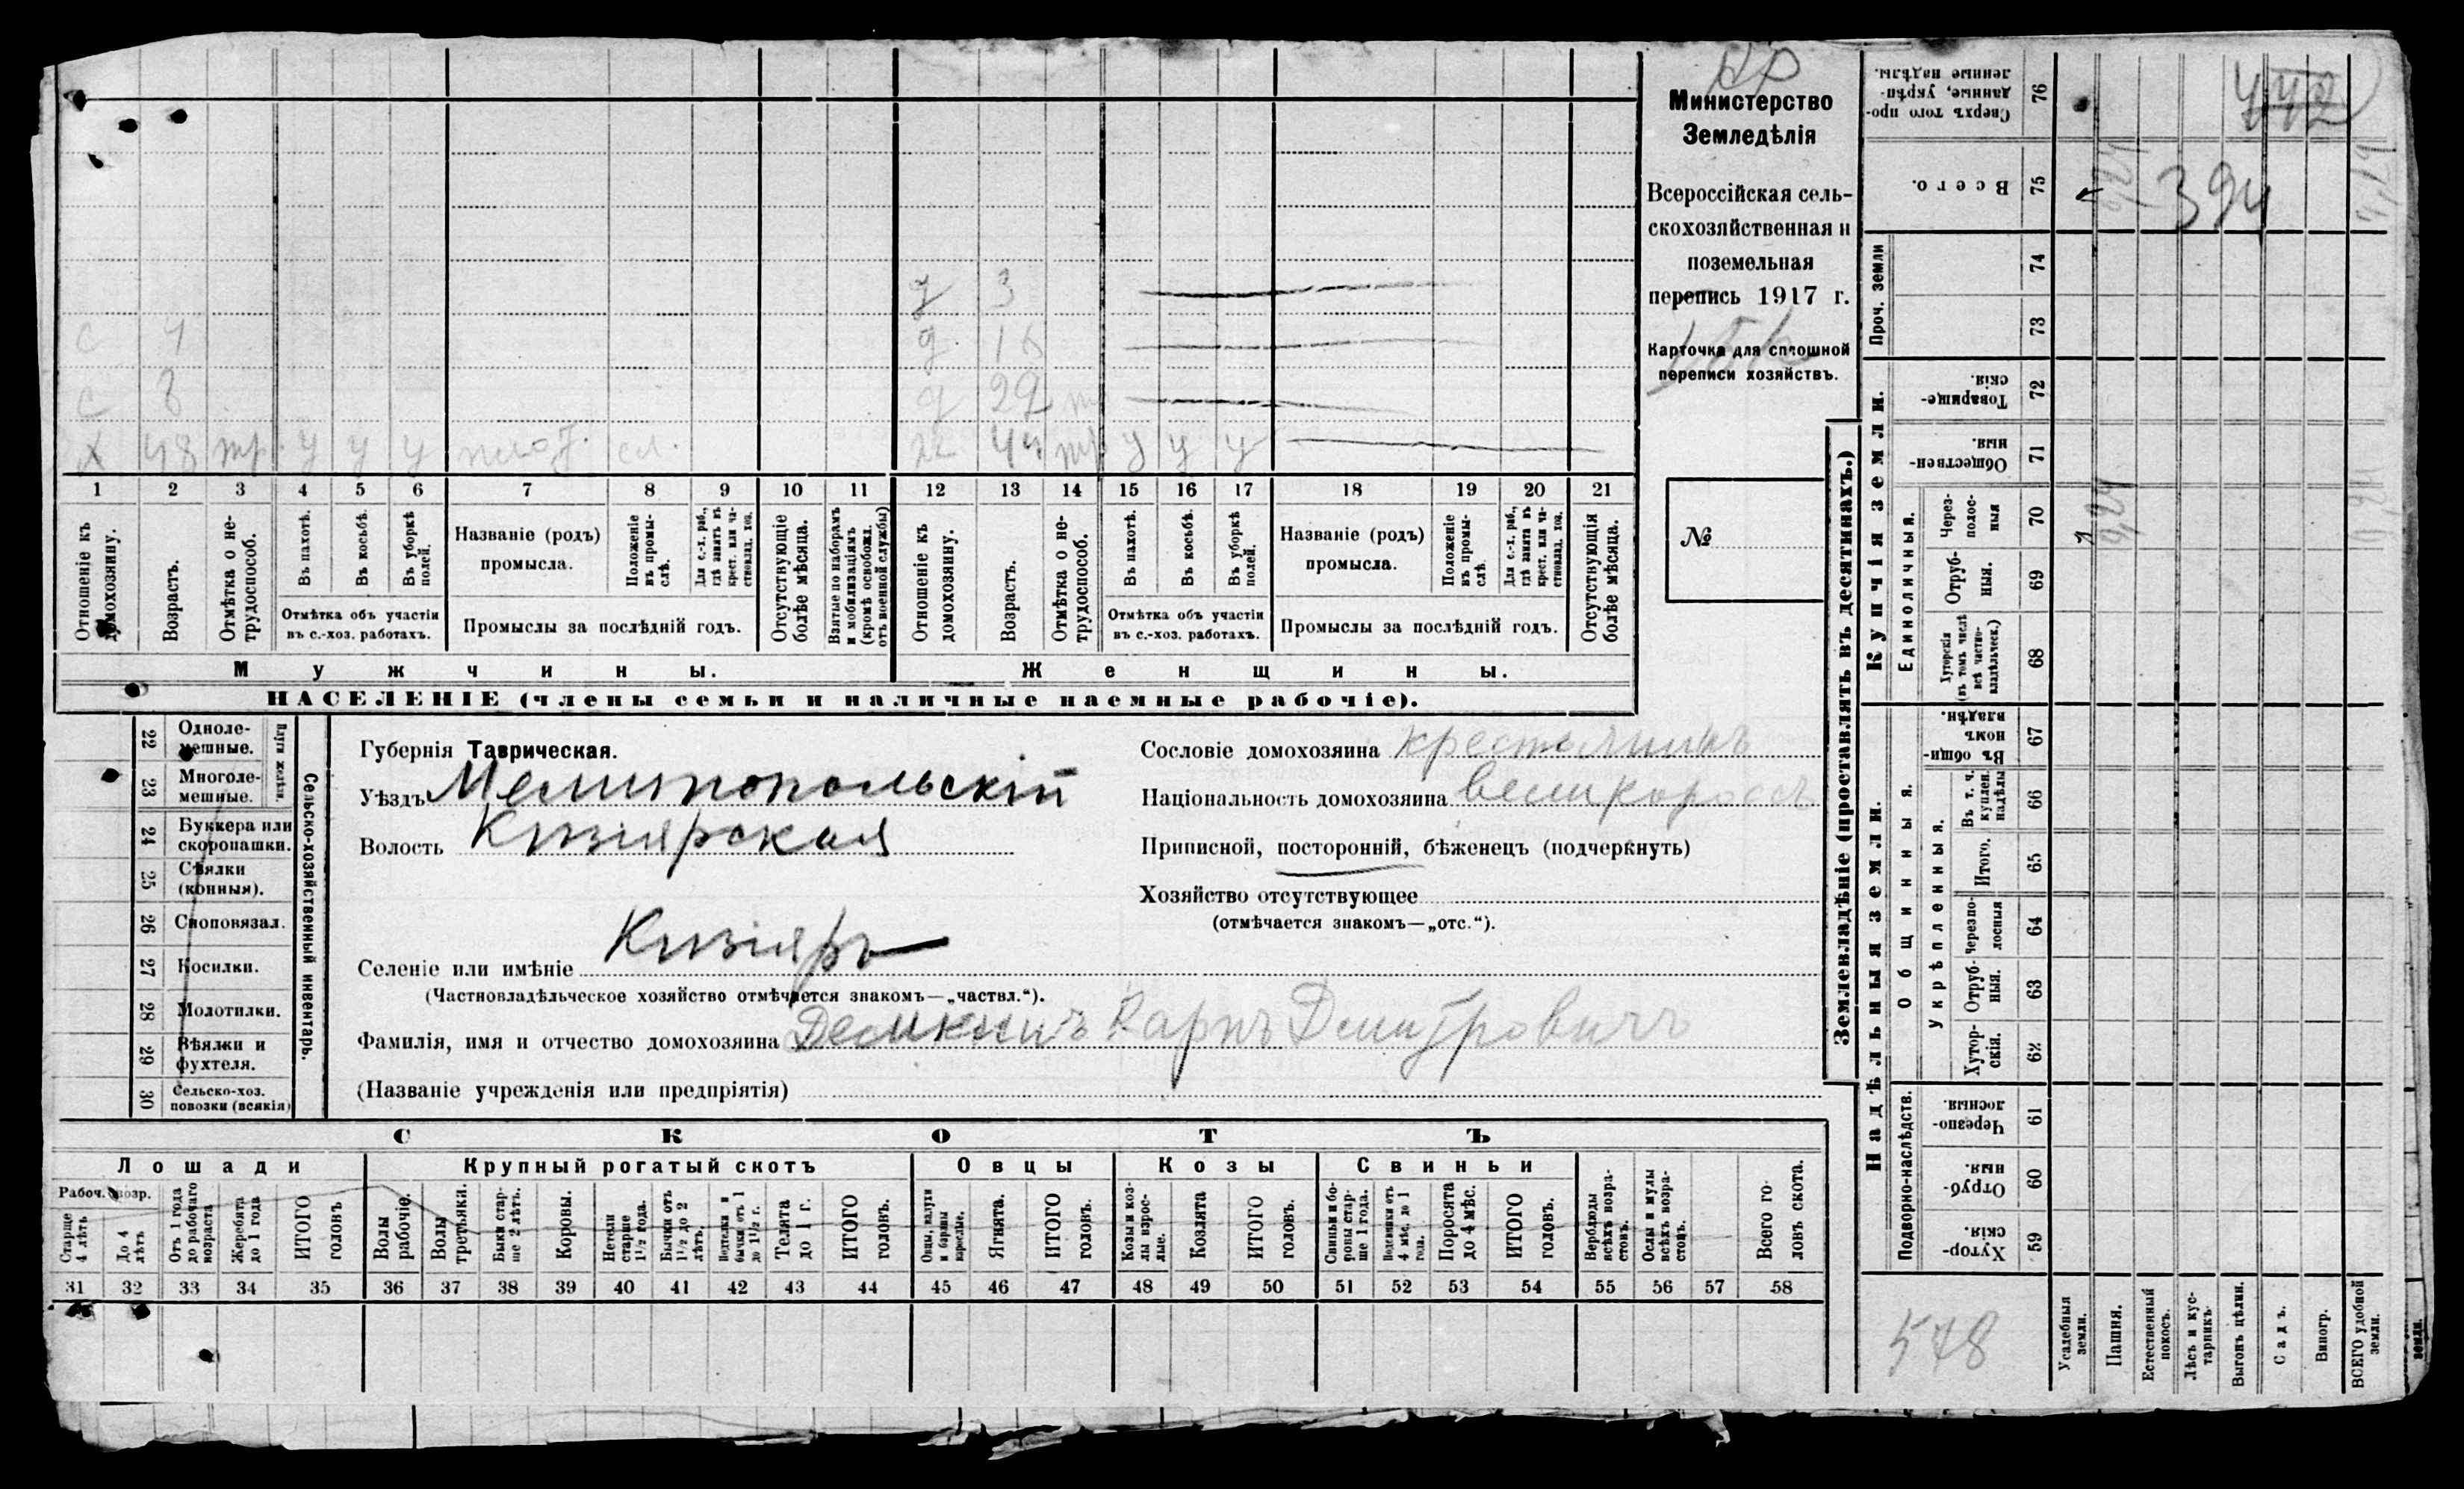 КР
Министерство
Земледѣлія
Всероссійская сель-
скохозяйственная и
поземельная
перепись 1917 г.
Карточка для сплошной
переписи хозяйствъ.
№
д 3
с 4 д 16
с 8 д 22
х 48 тр. у у у плот. сл. ж 44 тр у у у
1 2 3 4 5 6 7 8 9 10 11 12 13 14 15 16 17 18 19 20 21
Отношеніе къ домохозяину.
Возрастъ.
Отмѣтка о не-трудоспособ.
Въ пахотѣ.
Въ косьбѣ.
Въ уборкѣ полей.
Отмѣтка объ участіи
въ с.-хоз. работахъ.
Названіе (родъ)
промысла.
Положеніе въ промы-слѣ.
Для с.-х. раб., гдѣ занятъ въ крест. или ча-стновлад. хоз.
Промыслы за послѣдній годъ.
Отсутствующіе болѣе мѣсяца.
Взятые по наборамъ и мобилизаціямъ (кромѣ освобожд. отъ военной службы)
Отношеніе къ домохозяину.
Возрастъ.
Отмѣтка о не-трудоспособ.
Въ пахотѣ.
Въ косьбѣ.
Въ уборкѣ полей.
Отмѣтка объ участіи
въ с.-хоз. работахъ.
Названіе (родъ)
промысла.
Положеніе въ промы-слѣ.
Для с.-х. раб., гдѣ занята въ крест. или ча-стновлад. хоз.
Промыслы за послѣдній годъ.
Отсутствующія болѣе мѣсяца.
Мужчины. Женщины.
НАСЕЛЕНІЕ (члены семьи и наличные наемные рабочіе).
Сельско-хозяйственный инвентарь.
22 Одноле-мешные.
23 Многоле-мешные.
24 Буккера или скоропашки.
25 Сѣялки (конныя).
26 Сноповязал.
27 Косилки.
28 Молотилки.
29 Вѣялки и фухтеля.
30 Сельско-хоз. повозки (всякія)
Губернія Таврическая.
Уѣздъ Мелитопольскій
Волость Кизіярская
Селеніе или имѣніе Кизіяръ
(Частновладѣльческое хозяйство отмѣчается знакомъ—„частвл.“).
Сословіе домохозяина крестьянинъ
Національность домохозяина великороссъ
Приписной, посторонній, бѣженецъ (подчеркнуть)
Хозяйство отсутствующее
(отмѣчается знакомъ—„отс.“).
Фамилія, имя и отчество домохозяина Демкинъ Карпъ Дмитровичъ
(Названіе учрежденія или предпріятія)
СКОТЪ
Лошади Крупный рогатый скотъ Овцы Козы Свиньи
Рабоч. возр.
Старше 4 лѣтъ
До 4 лѣтъ
Отъ 1 года до рабочаго возраста
Жеребята до 1 года
ИТОГО головъ
Волы рабочіе.
Волы третьяки.
Быки стар-ше 2 лѣтъ.
Коровы.
Нетели старше 1½ года.
Бычки отъ 1½ до 2 лѣтъ.
Подтелки и бычки отъ 1 до 1½ г.
Телята до 1 г.
ИТОГО головъ.
Овцы, валухи и бараны взрослые.
Ягнята.
ИТОГО головъ.
Козы и коз-лы взрос-лые.
Козлята
ИТОГО головъ.
Свиньи и бо-ровы стар-ше 1 года.
Подсвинки отъ 4 мѣс. до 1 года.
Поросята до 4 мѣс.
ИТОГО головъ.
Верблюды всѣхъ возра-стовъ.
Ослы и мулы всѣхъ возра-стовъ.
Всего го-ловъ скота.
31 32 33 34 35 36 37 38 39 40 41 42 43 44 45 46 47 48 49 50 51 52 53 54 55 56 57 58
Землевладѣніе (проставлять въ десятинахъ.)
Купчія земли.
Надѣльныя земли.
Проч. земли
Единоличныя.
Общинныя.
Укрѣпленныя.
Подворно-наслѣдств.
76 Сверхъ того про-данные, укрѣп-ленные надѣлы.
75 Всего.
74
73
72 Товарище-скія.
71 Обществен-ныя.
70 Через-полос-ныя
69 Отруб-ныя.
68 Хуторскія (въ томъ числѣ всѣ частно-владѣльческ.)
67 Въ общи-номъ владѣн.
66 Въ т. ч. куплен. надѣлы
65 Итого.
64 Черезпо-лосныя
63 Отруб-ныя.
62 Хутор-скія.
61 Черезпо-лосныя.
60 Отруб-ныя.
59 Хутор-скія.
Усадебныя земли.
Пашня.
Естественный покосъ.
Лѣсъ и кус-тарникъ
Выгонъ цѣлин.
Садъ.
Виногр.
ВСЕГО удобной земли.
442
394
578